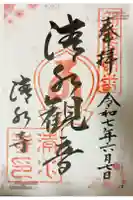 奉拝
令和七年六月七日
清水観音
清水寺